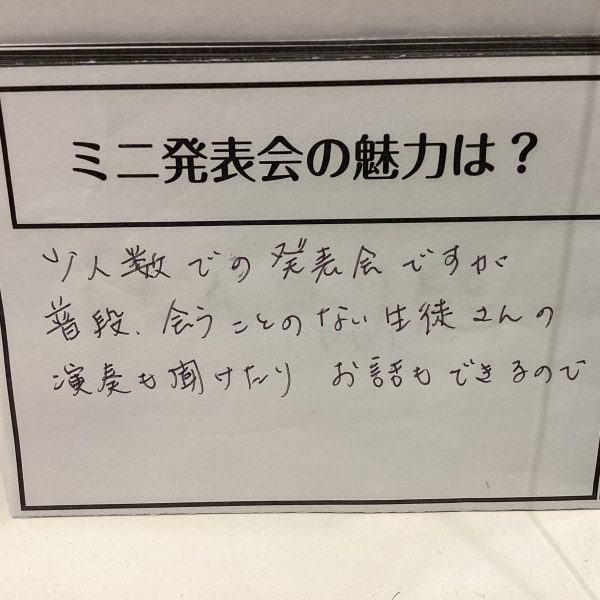 ミニ発表会の魅力は？
少人数での発表会ですが
普段、会うことのない生徒さんの
演奏も聞けたり お話もできるので